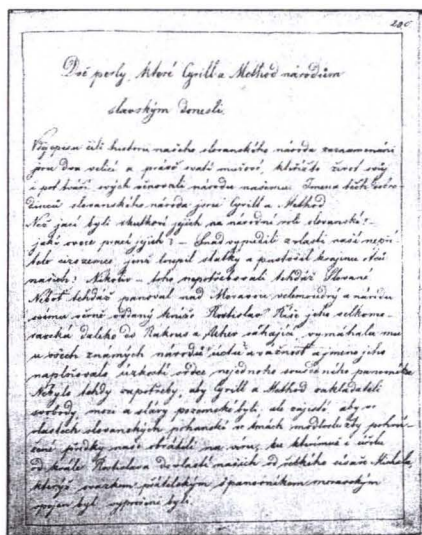 Dvě perly, které Cyrill a Method národům
slovanským donesli.
čili historii našeho slovanského národa zaznamenáni
jsou dva velicí a právě svatí mužové, kteřížto život svůj
i své věnovali národu našemu. Jména těchto
slovanského národa jsou: Cyrill a Method.
Než jací byli skutkové jejich na národní roli slovanské? –
jaké ovoce práce jejich? – Snad vypudili z vlasti naší nepřá-
tele cizozemce, jenž loupil statky a pustošil krajinu otců
našich? Nikoliv – toho nepotřebovali tehdáž Slované
Neboť tehdáž panoval nad Moravou velemoudrý a národu
svému věrně oddaný kníže Rostislav. Říše jeho velkomo-
ravská daleko do Rakous a Uher sáhající, vymáhala mu
u všech známých národů úctu a vážnost a jméno jeho
naplňovalo úzkostí srdce nejednoho současného panovníka.
Nebylo tehdy zapotřebí, aby Cyrill a Method zakladateli
svobody, moci a slávy pozemské byli, ale zajisté, aby ve
vlastech slovanských pohanské ve tmách modloslužby pohrou-
žené předky naše obrátili na víru, ku kterémuž i účelu
od krále Rostislava do vlastí našich od řeckého císaře Michala,
kterýž svazkem přátelským s panovníkem moravským
spojen byl, vyprošeni byli.